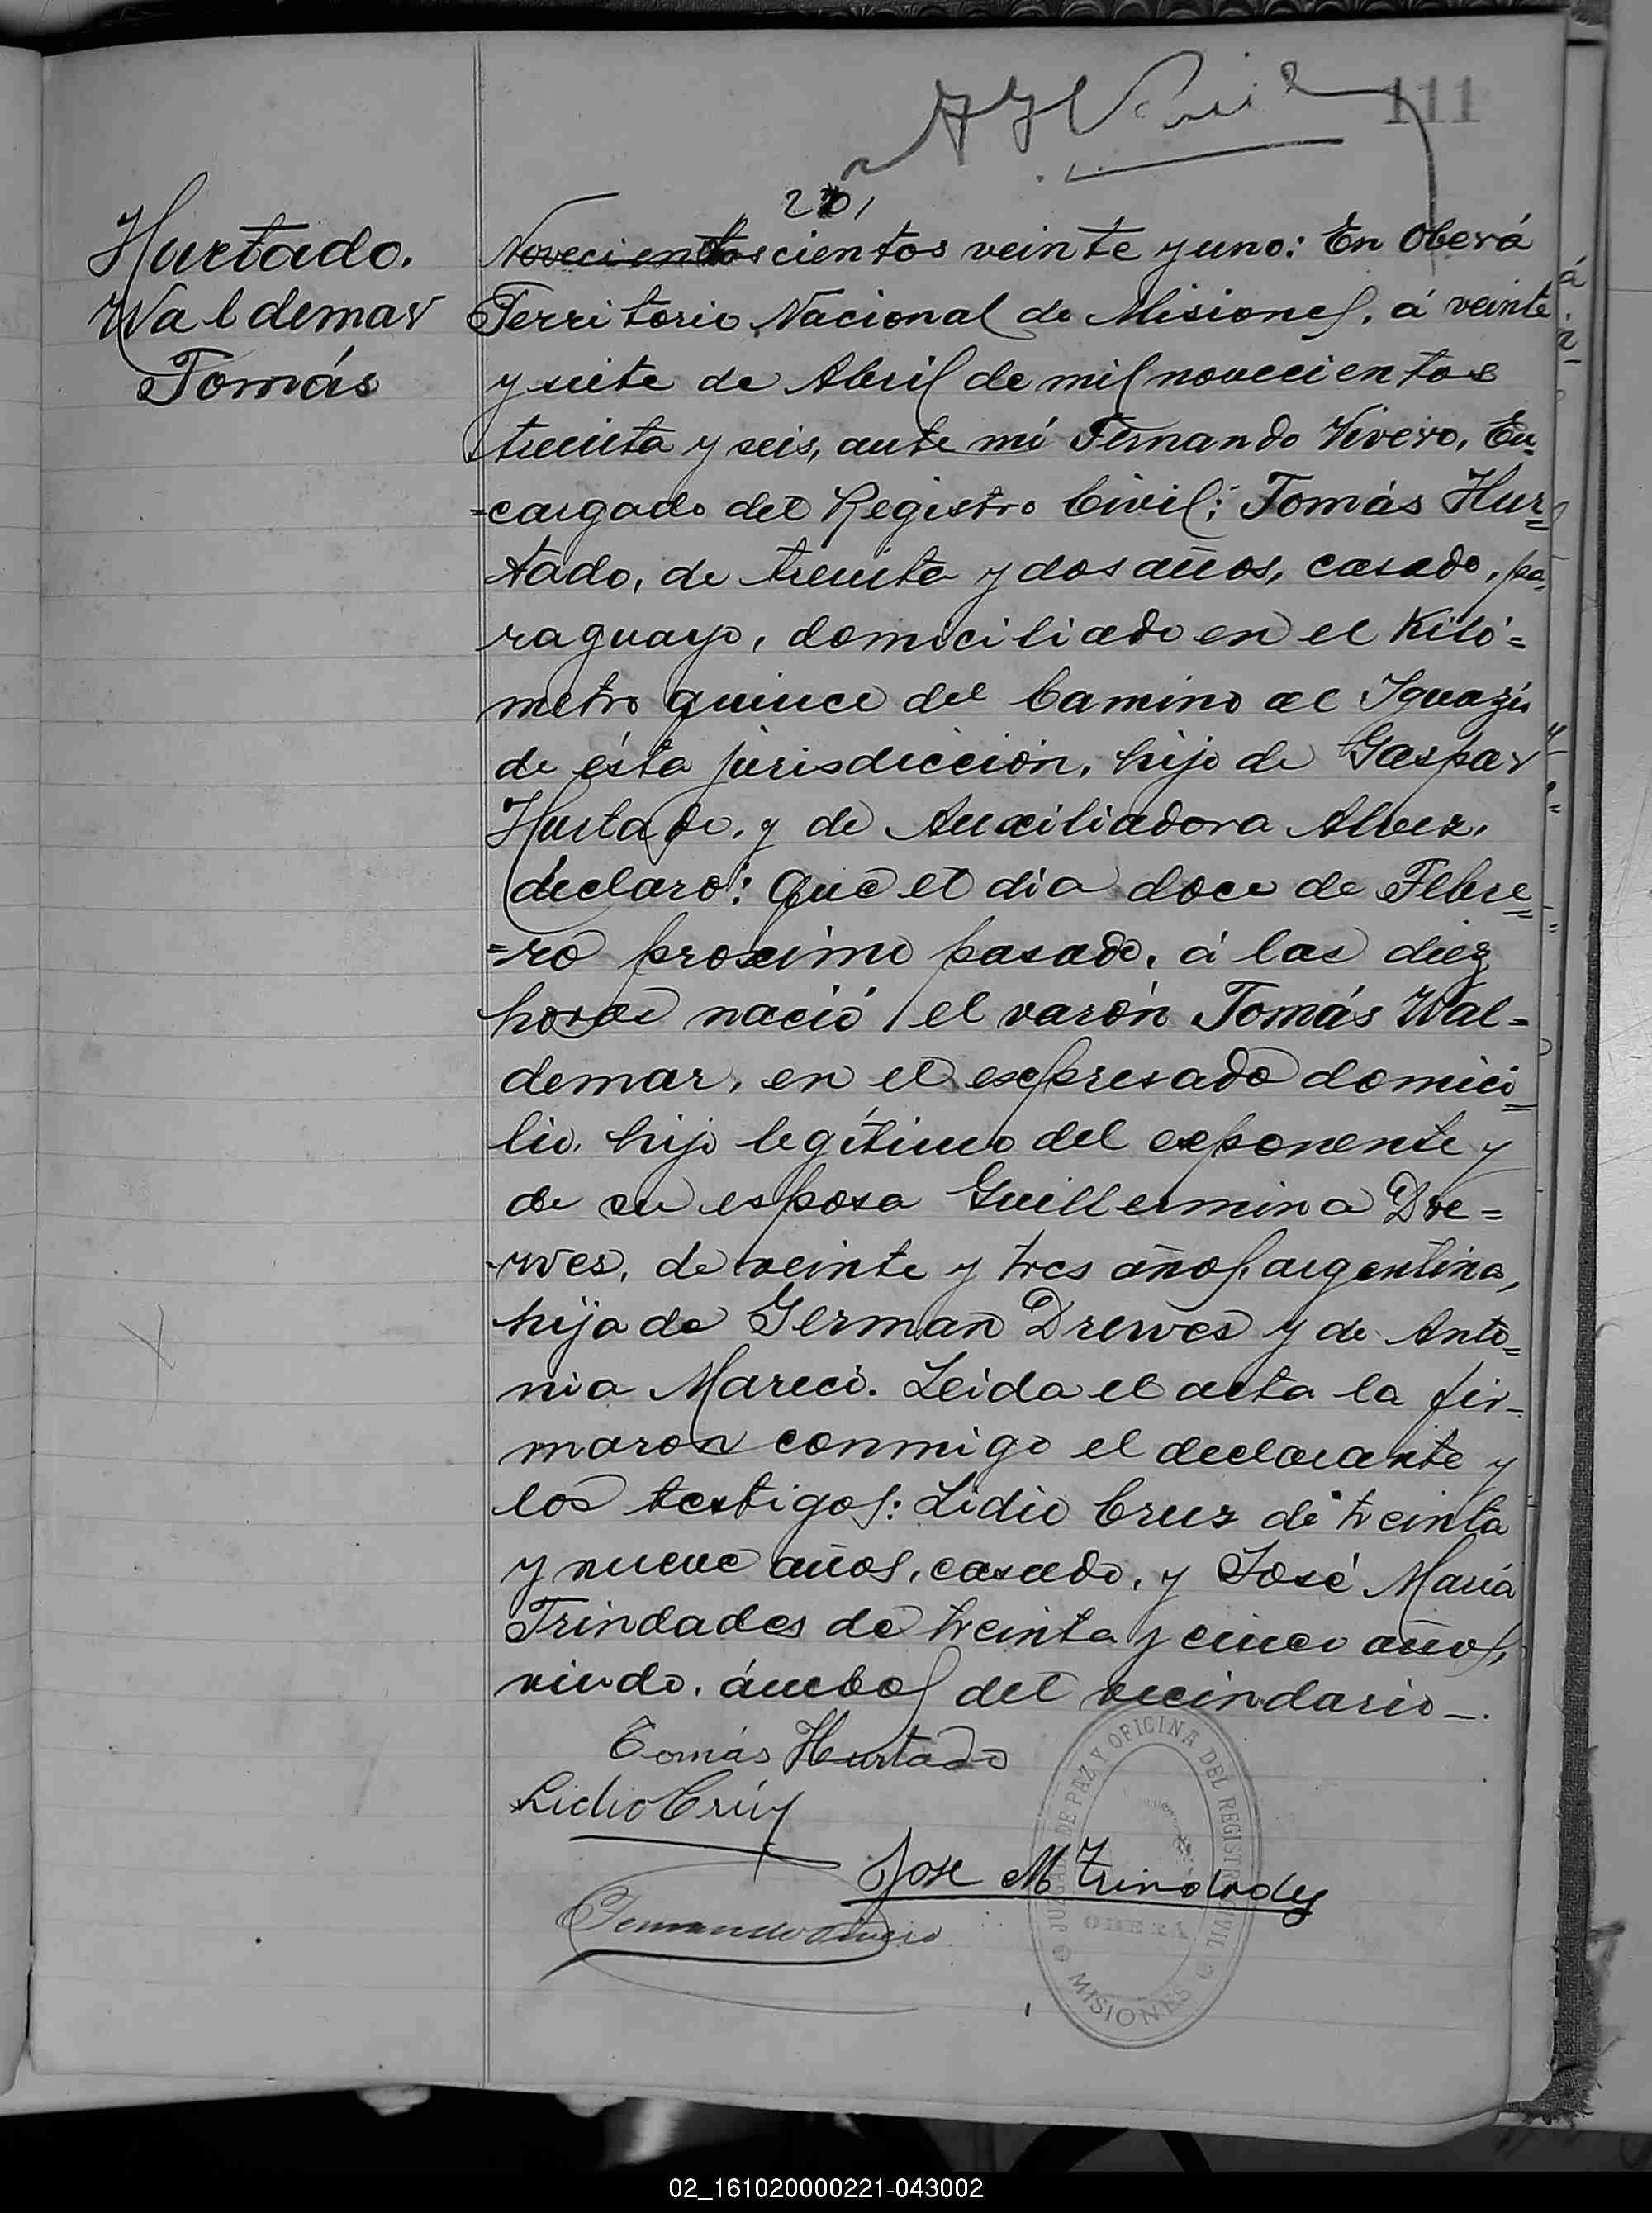 111
221
Hurtado.
Waldemar
Tomás
Novecientos cientos veinte y uno: En Oberá
Territorio Nacional de Misiones, á veinte
y siete de Abril de mil novecientos
treinta y seis, ante mí Fernando Vivero, En-
=cargado del Registro Civil; Tomás Hur=
tado, de treinta y dos años, casado, pa-
raguayo, domiciliado en el Kiló=
metro quince del Camino al Iguazú
de ésta jurisdicción, hijo de Gaspar
Hurtado, y de Auxiliadora Alvez,
declaro: Que el dia doce de Febre=
=ro proximo pasado, á las diez
horas nació el varón Tomás Wal=
demar, en el expresado domici=
lio, hijo legítimo del exponente y
de su esposa Guillermina Dre=
-wes, de veinte y tres años, argentina,
hija de German Drewes y de Anto=
nia Mareci. Leida el acta la fir-
maron conmigo el declarante y
los testigos: Lidio Cruz de treinta
y nueve años, casado, y José María
Trindades de treinta y cinco años,
viudo, ámbos del vecindario_.
Tomás Hurtado
Lidio Crúz
Jose M Trindades
Fernando Vivero
JUZGADO DE PAZ Y OFICINA DEL REGISTRO CIVIL
OBERÁ
MISIONES
02_161020000221-043002